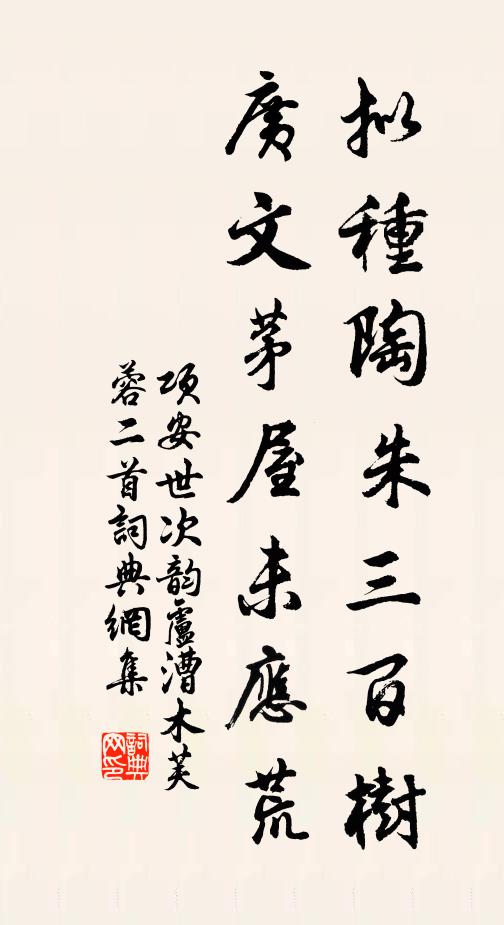 拟種陶朱三百樹
廣文茅屋未應荒
項安世次韵盧漕木芙
蓉二首詞典網集
詞典
网印